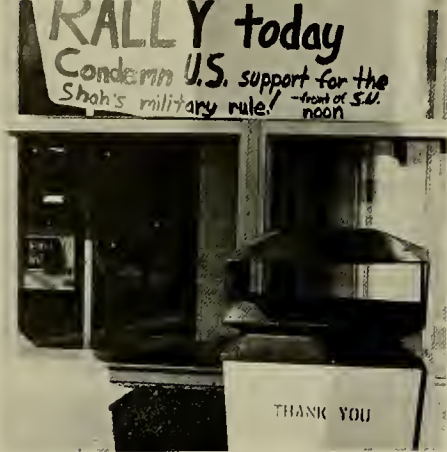 RALLY today
Condemn U.S. support for the
Shah's military rule! -front of S.U.
noon
THANK YOU